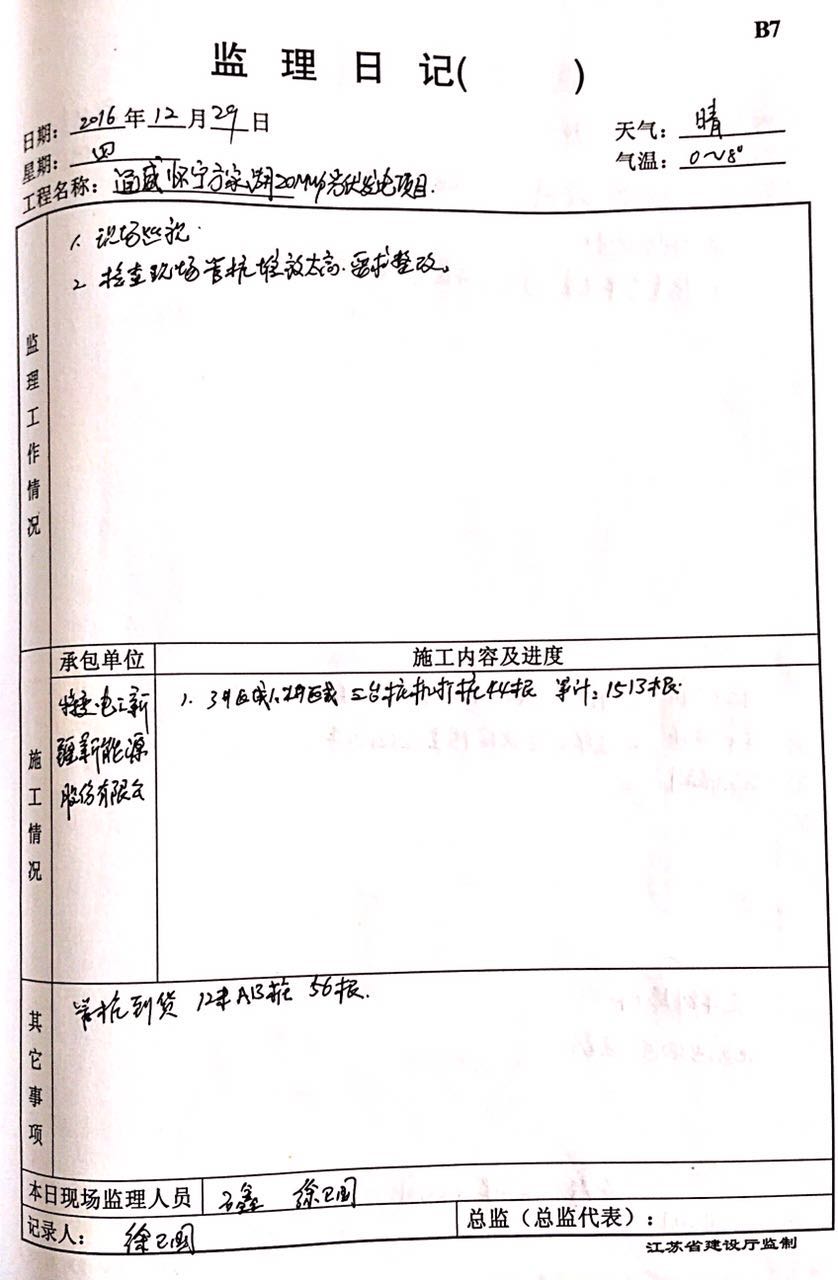 B7
监理日记( )
日期：2016年12月29日
天气：晴
星期：四
气温：0～8°
工程名称：通威怀宁方家湖20MW光伏发电项目.
监理工作情况
1. 现场巡视.
2. 检查现场管桩堆放太高.要求整改。
承包单位
施工内容及进度
施工情况
特变电工新
疆新能源
股份有限公
1. 3#区域、 三台桩机打桩44根 累计：1513根.
其它事项
管桩到货 12米AB桩 56根.
本日现场监理人员
石鑫 徐卫国
记录人：徐卫国
总监（总监代表）：
江苏省建设厅监制